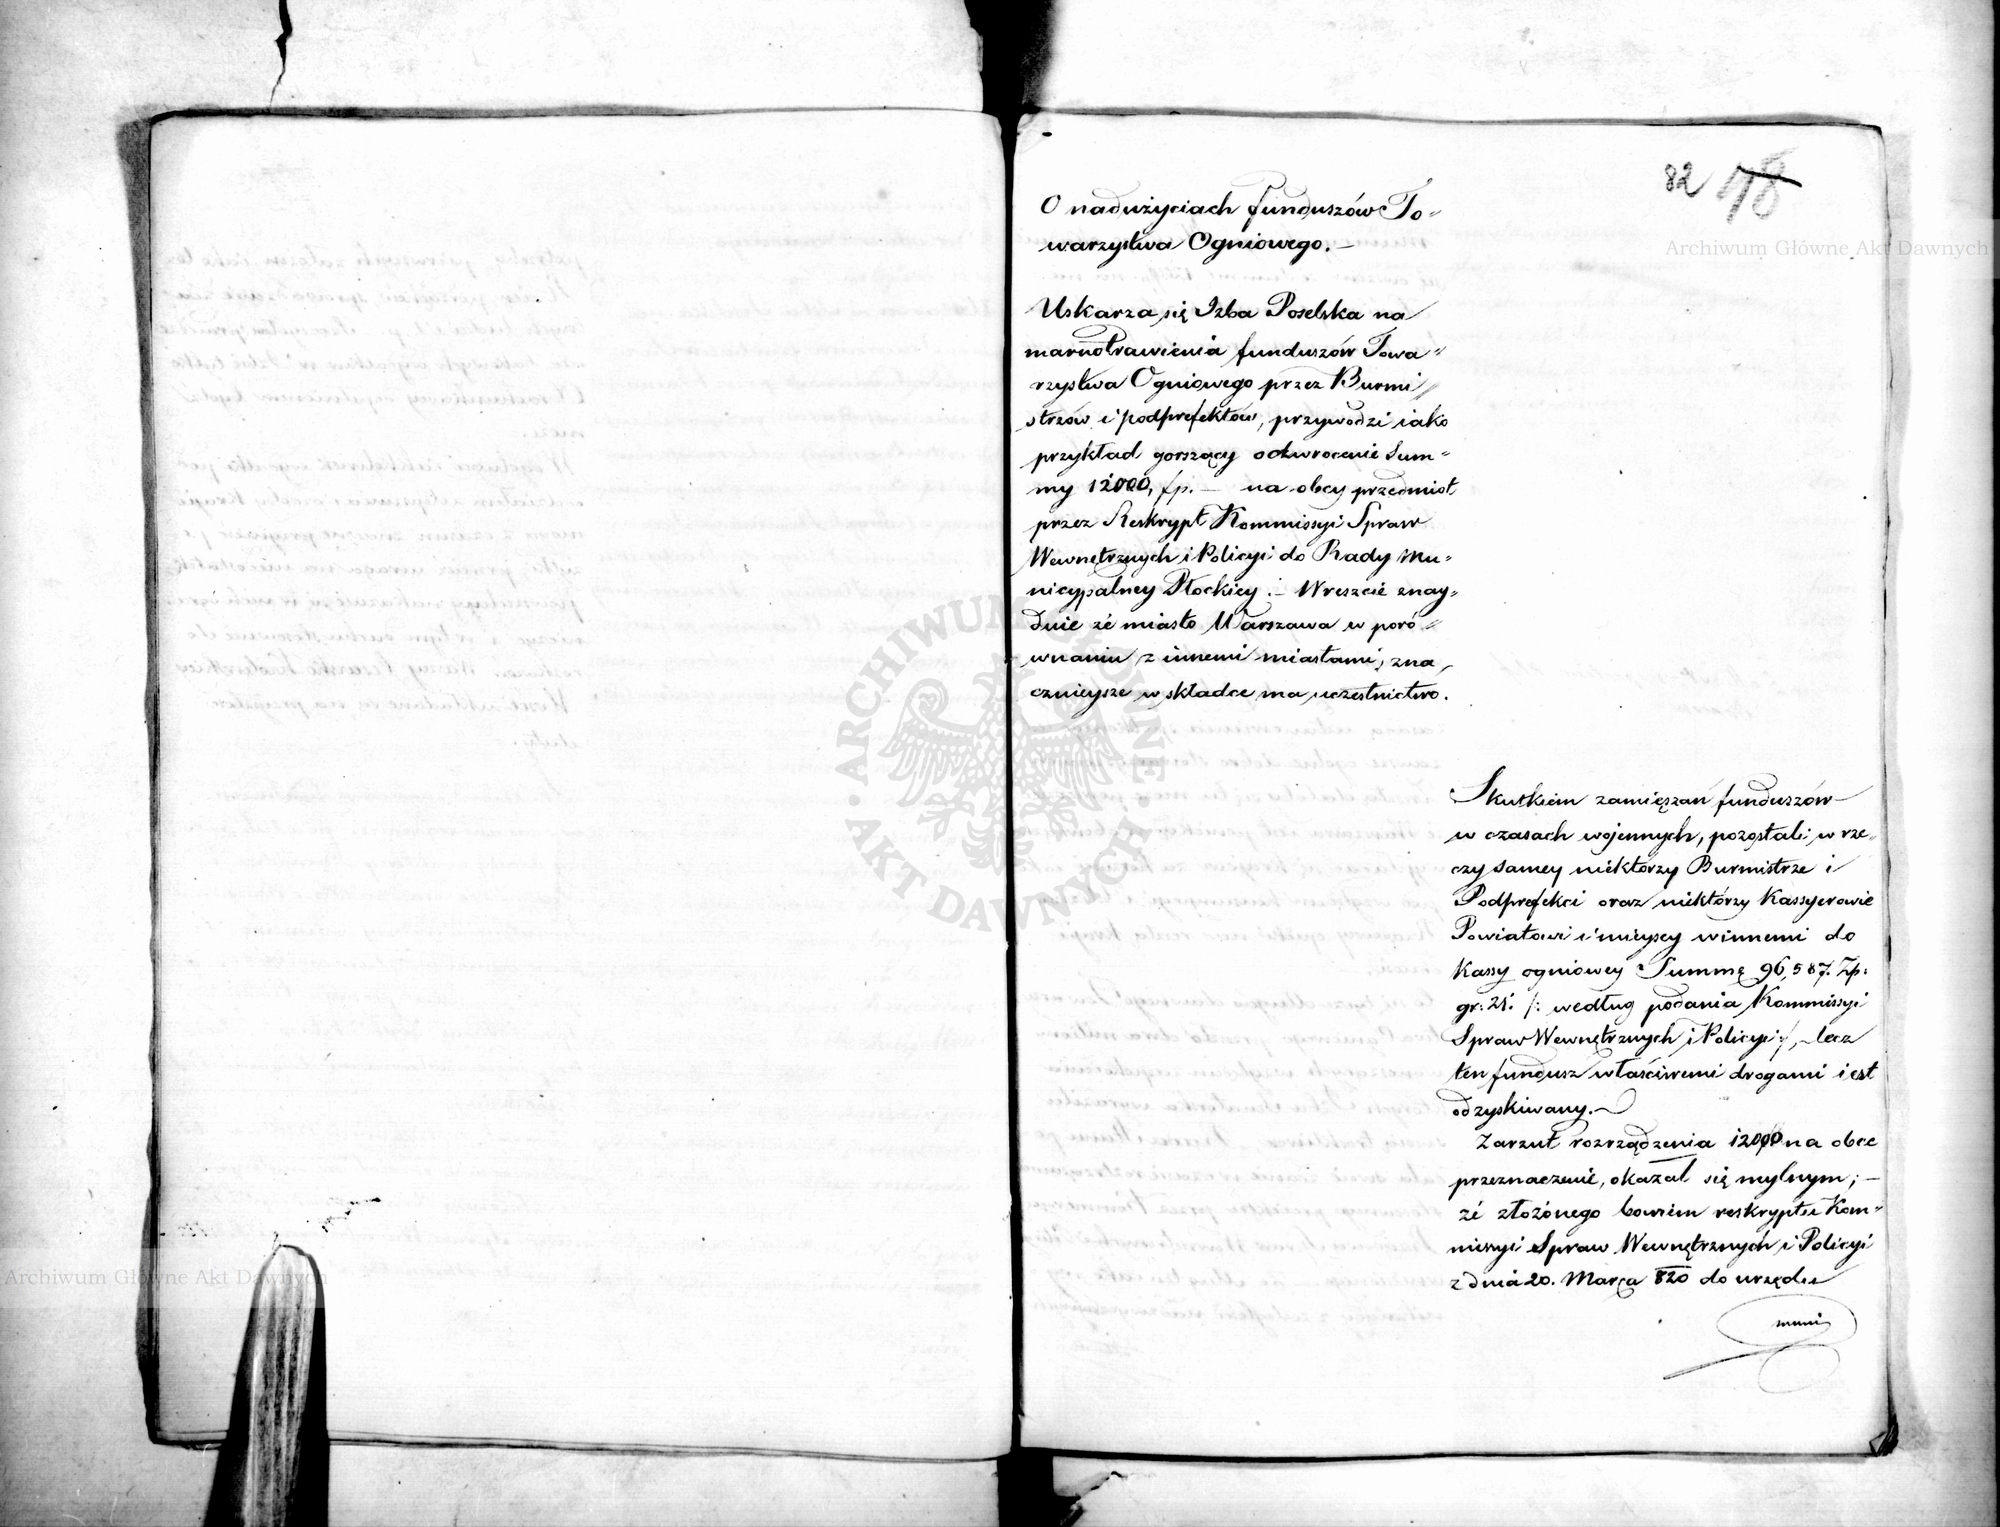 82 78
O nadużyciach funduszów To=
warzystwa Ogniowego. —
Uskarza się Izba Poselska na
marnotrawienia funduszów Towa=
rzystwa Ogniowego przez Burmi=
strzów i podprefektów, przywodzi iako
przykład gorszący odwrocenie Sum=
my 12000, fp. — na obcy przedmiot
przez Reskrypt Kommissyi Spraw
Wewnętrznych i Policyi do Rady Mu=
nicypalney Płockiey. — Wreszcie znay=
duie że miasto Warszawa w poró=
wnaniu z innemi miastami, zna=
cznieysze w składce ma uczestnictwo.
Skutkiem zamięszań funduszów
w czasach wojennych, pozostali w rze=
czy samey niektórzy Burmistrze i
Podprefekci oraz niektórzy Kassyerowie
Powiatowi i mieyscy winnemi do
Kassy ogniowey Summę 96,587. Zp:
gr: 21. /: według podania Kommissyi
Spraw Wewnętrznych i Policyi :/, — lecz
ten fundusz właściwemi drogami iest
odzyskiwany. —
Zarzut rozrządzenia 12000 na obce
przeznaczenie, okazał się mylnym; —
ze złożonego bowiem reskryptu Kom=
missyi Spraw Wewnętrznych i Policyi
z dnia 20. Marca 820 do urzędu
muni
Archiwum Główne Akt Dawnych
Archiwum Główne Akt Dawnych
ARCHIWUM GŁÓWNE AKT DAWNYCH